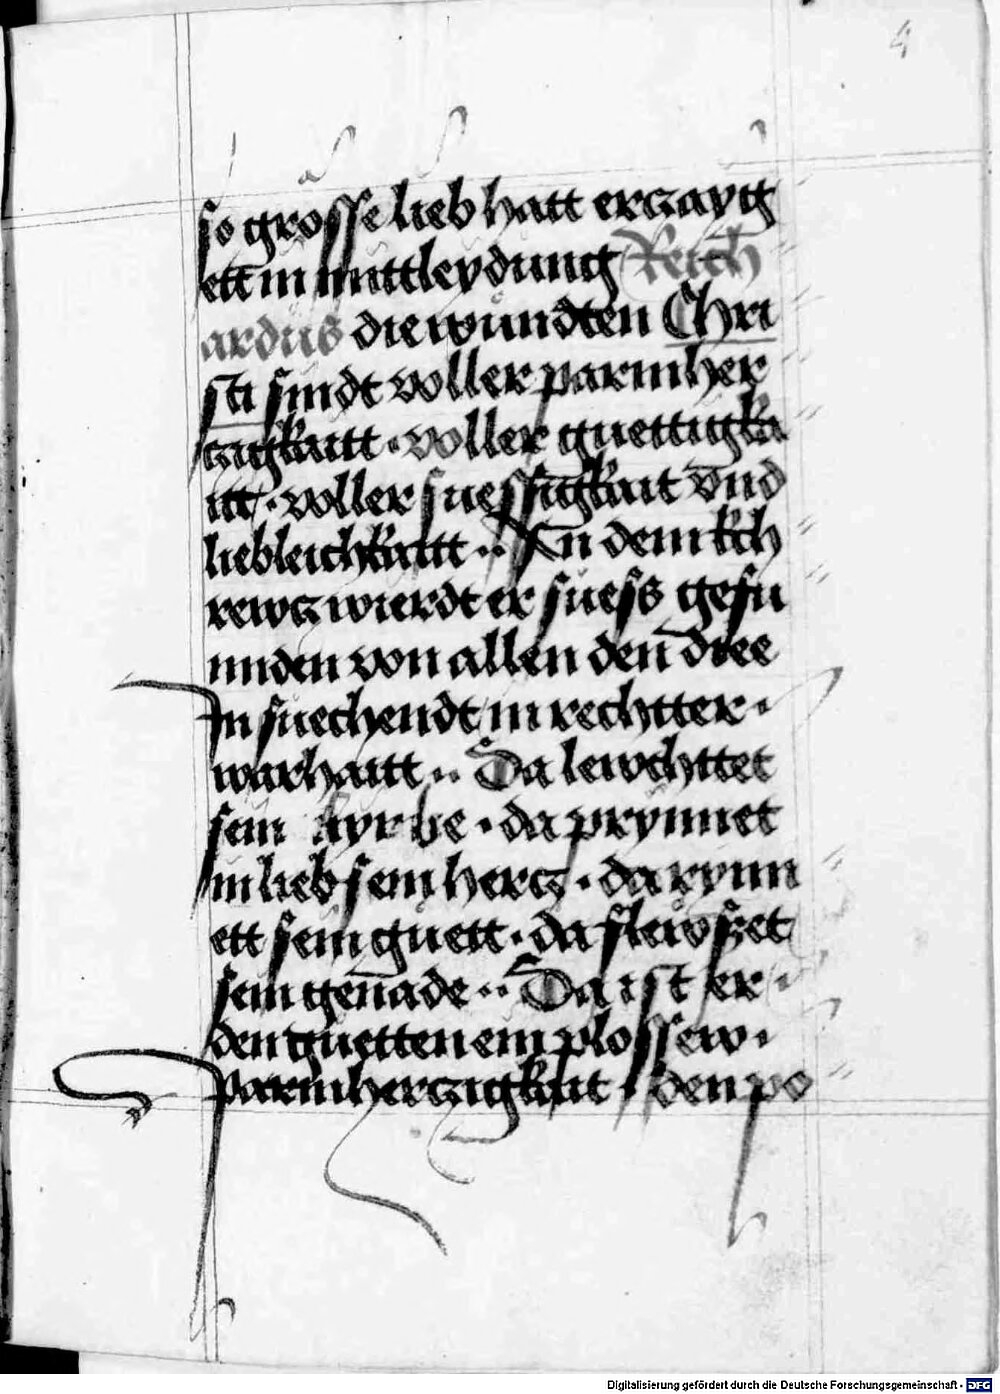 4
so grosse lieb hatt erczayg
ett in mittleydung Reich
ardus die wundten Chri
sti sindt voller parmher
czigkaitt · voller guettigka
itt · voller suessigkait vnd
liebleichkaitt ·· An dem kch
rewcz wierdt er suess gefu
nnden von allen den dree
In suechendt in rechtter ·
warhaitt ·· Da lewchttet
sein · da prynnet
in lieb sein hercz · da rynn
ett sein guett · da flewsset
sein genade ·· Da ist er ·
den guetten ein plossew ·
parmherczigkait · den po
Digitalisierung gefördert durch die Deutsche Forschungsgemeinschaft - DFG